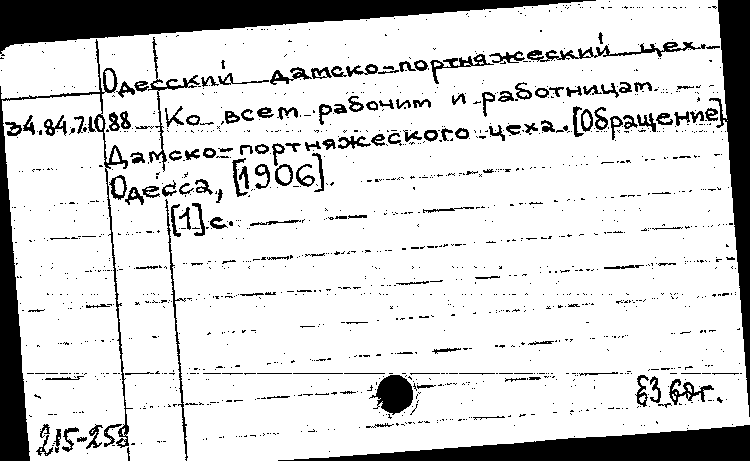 Одесский дамско-портняжеский цех.
34.84.7.10.88 Ко всем рабочим и работницам
Дамско-портняжеского цеха. [Обращение].
Одесса, [1906].
[1] с.
215-258